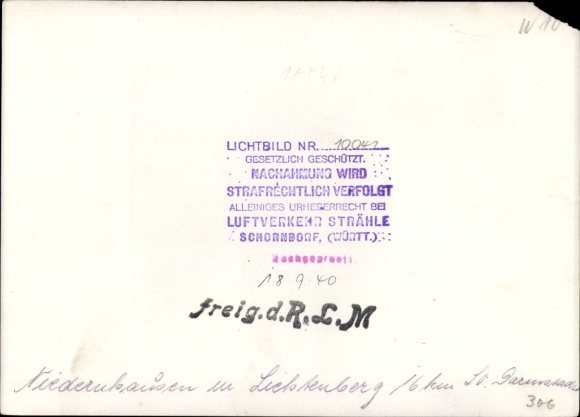 W 10
10041
LICHTBILD NR. 10041
GESETZLICH GESCHÜTZT.
NACHAHMUNG WIRD
STRAFRECHTLICH VERFOLGT
ALLEINIGES URHEBERRECHT BEI
LUFTVERKEHR STRÄHLE
SCHORNDORF, (WÜRTT.)
Nachgeprüft
18.9.40
freig.d.R.L.M
Niedernhausen m Lichtenberg 16 km SO. Darmstadt
306